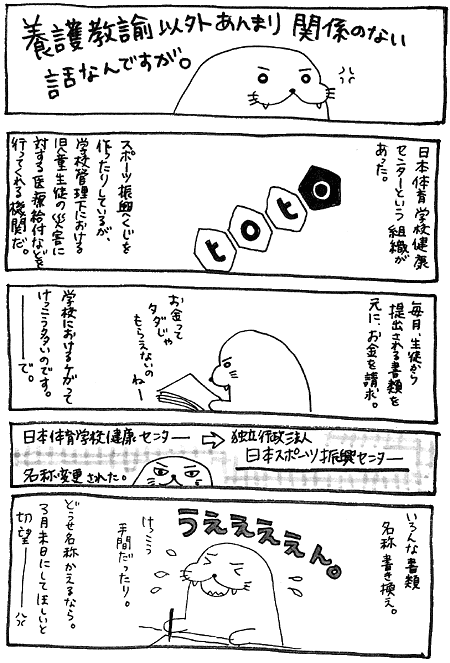 養護教諭以外あんまり関係のない
話なんですが。
日本体育学校健康
センターという組織が
あった。
toto
スポーツ振興くじを
作ったりしているが、
学校管理下における
児童生徒の災害に
対する医療給付などを
行ってくれる機関だ。
毎月、生徒から
提出される書類を
元に、お金を請求。
お金って
タダじゃ
もらえないの
ねー
学校におけるケガって
けっこう多いのです。
で。
日本体育学校健康センター ⇨ 独立行政法人
日本スポーツ振興センター
名称変更された。
いろんな書類
名称書き換え。
うえええええん。
けっこう
手間だったり。
どうせ名称かえるなら。
3月末日にしてほしいと
切望